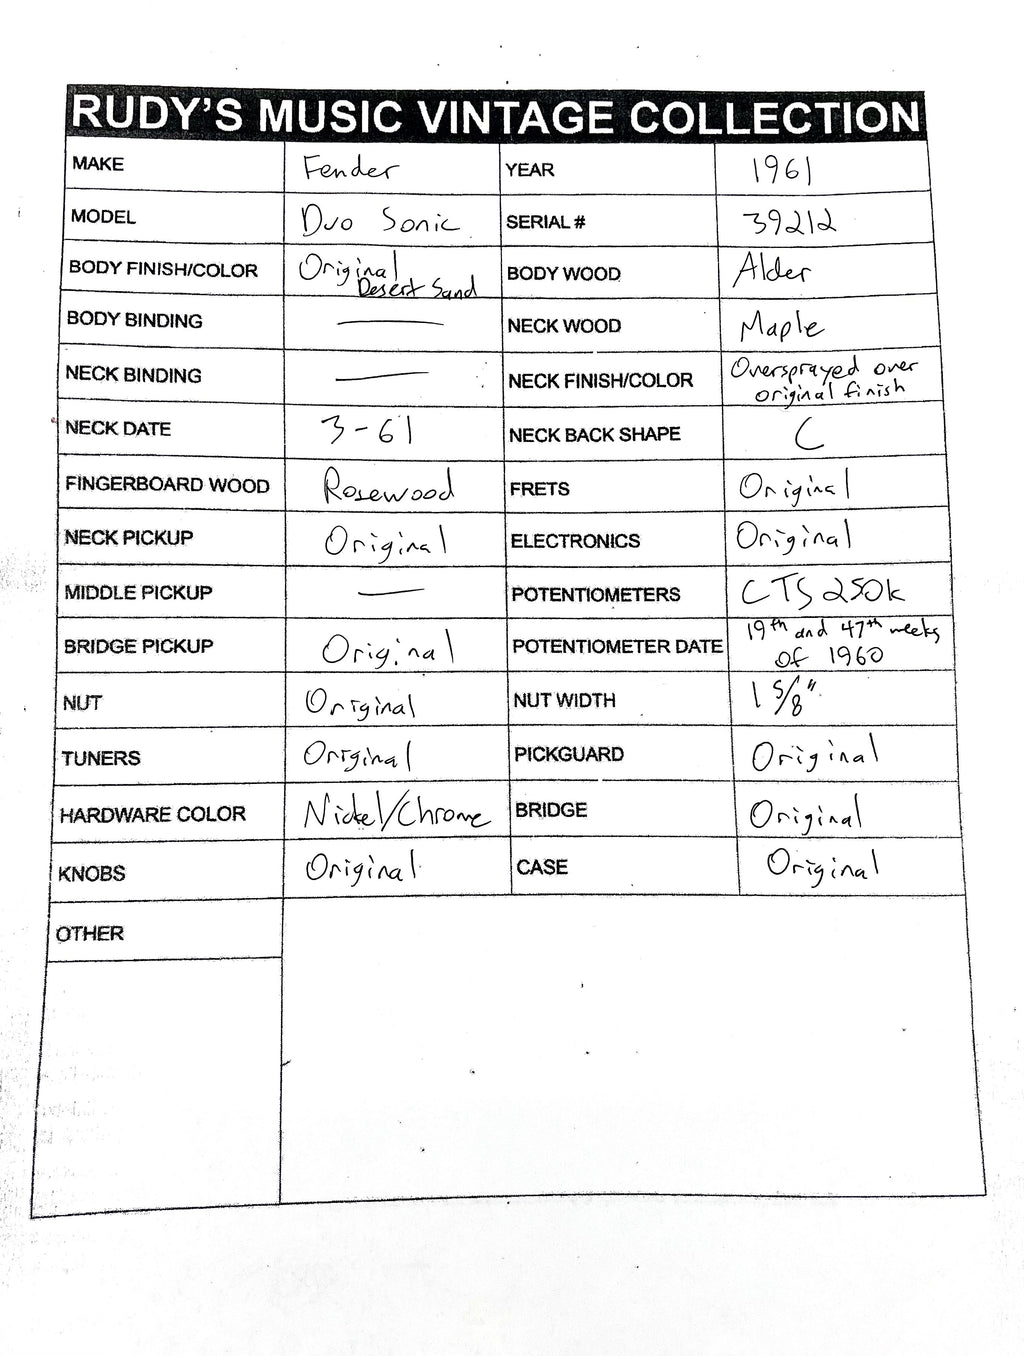 RUDY'S MUSIC VINTAGE COLLECTION
MAKE Fender YEAR 1961
MODEL Duo Sonic SERIAL # 39212
BODY FINISH/COLOR Original Desert Sand BODY WOOD Alder
BODY BINDING — NECK WOOD Maple
NECK BINDING — NECK FINISH/COLOR Oversprayed over original finish
NECK DATE 3-61 NECK BACK SHAPE C
FINGERBOARD WOOD Rosewood FRETS Original
NECK PICKUP Original ELECTRONICS Original
MIDDLE PICKUP — POTENTIOMETERS CTS 250k
BRIDGE PICKUP Original POTENTIOMETER DATE 19th and 47th weeks of 1960
NUT Original NUT WIDTH 1 5/8"
TUNERS Original PICKGUARD Original
HARDWARE COLOR Nickel/Chrome BRIDGE Original
KNOBS Original CASE Original
OTHER